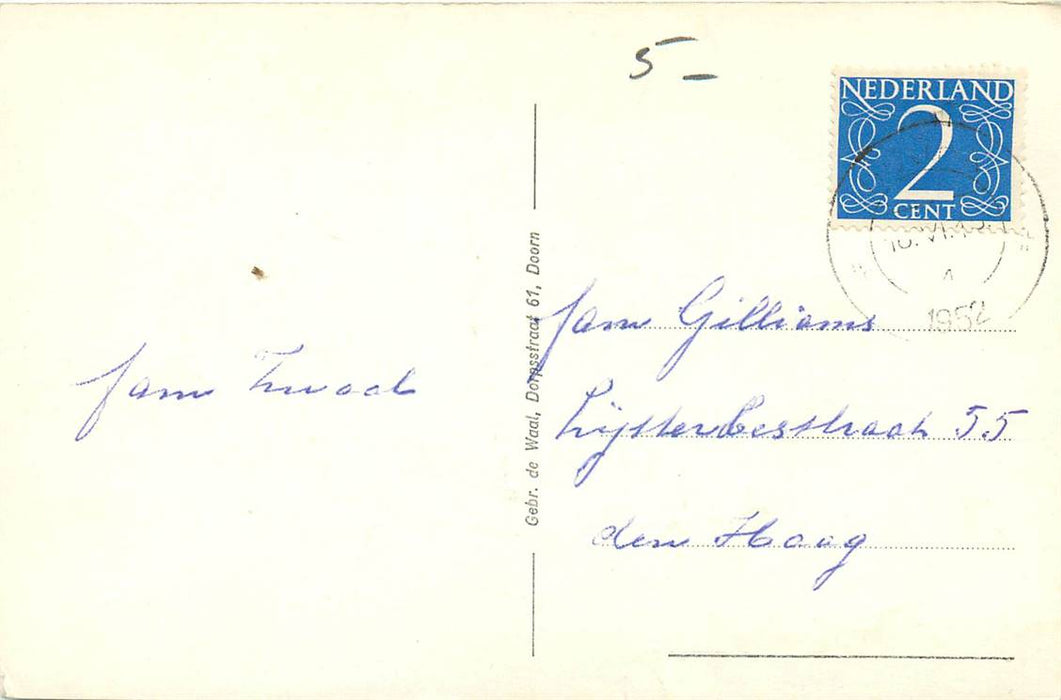 5 –
NEDERLAND
2
CENT
1952
Gebr. de Waal, Dorpsstraat 61, Doorn
fam Gilliams
Lijsterbesstraat 55
den Haag
fam